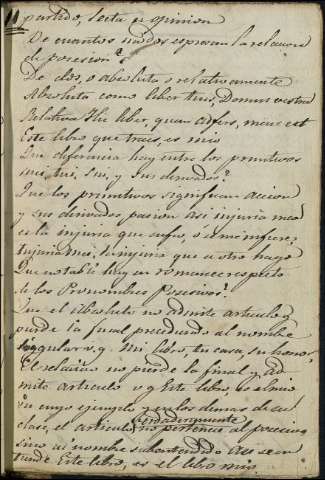 11 partido, secta u opinion
De cuantos modos espresan la relacion
de posesion?
De dos, o absoluta o relativamente
Absoluta como liber tuus, Domus vestra
Relativa Hic liber, quem adfers, meus est
Este libro que traes, es mio
Que diferencia hay entre los primitivos
mei, tui, sui, y sus derivados?
Que los primitivos significan accion
y sus derivados pasion asi injuria mea
es la injuria que sufro, ó á mi inferes
injuria mei, la injuria que á otro hago
Que notable hay en romance respecto
de los Pronombres Posesivos?
Que el absoluto no admite articulo y
pierde la final precediendo al nombre
singular v. g. Mi libro, tu casa, su honor
El relativo no pierde la final y ad
mite articulo v g Este libro, es el mio
en cuyo ejemplo y en los demas de su
clase, el articulo verdaderamente no pertenece al posesivo
sino al nombre subentendido Asi se en
tiende Este libro, es el libro mio.